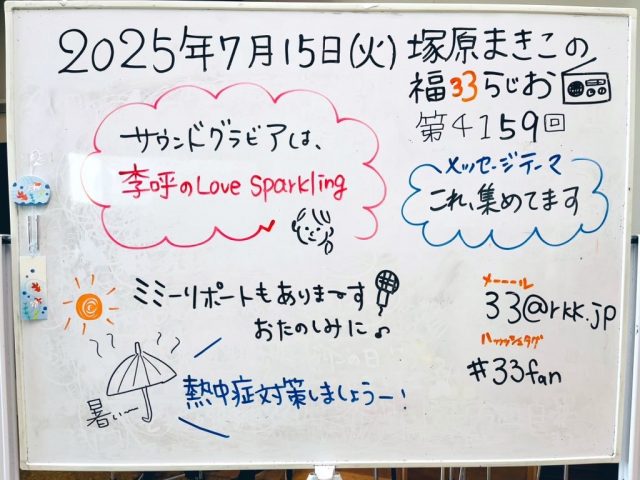 2025年7月15日(火)塚原まきこの
福33らじお
第4159回
サウンドグラビアは、
李呼のLove Sparkling
メッセージテーマ
これ、集めてます
ミミーリポートもありまーす
おたのしみに♪
メーール
33@rkk.jp
ハッシュタグ
#33fan
暑ぃ〜
熱中症対策しましょうー!